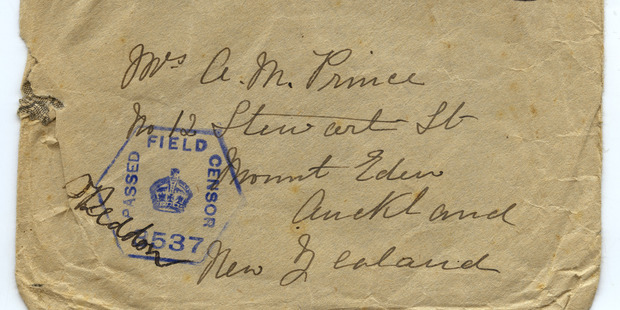 Mrs A. M. Prince
No 12 Stewart St
Mount Eden
Auckland
New Zealand
PASSED FIELD CENSOR
537